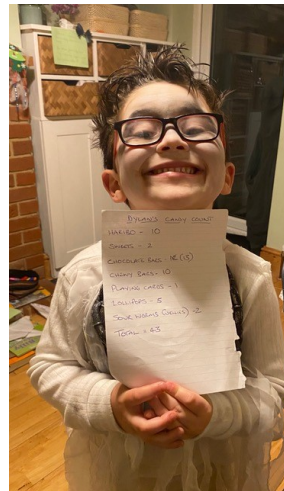 DYLAN'S CANDY COUNT
HARIBO - 10
- 2
CHOCOLATE BARS - (15)
CHEWY BARS - 10
PLAYING CARDS - 1
LOLLIPOPS - 3
SOUR WORMS - 2
TOTAL = 43